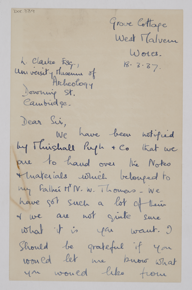 Grove Cottage
West Malvern
Worcs.
18-2-37.
L Clarke Esq,
University Museum of
Archeology
Downing St.
Cambridge.
Dear Sir,
We have been notified
by & Co that we
are to hand over his Notes
& materials which belonged to
my Father Mr N. W. Thomas. We
have got such a lot of his
& we are not quite sure
what it is you want. I
should be grateful if you
would let me know what
you would like from